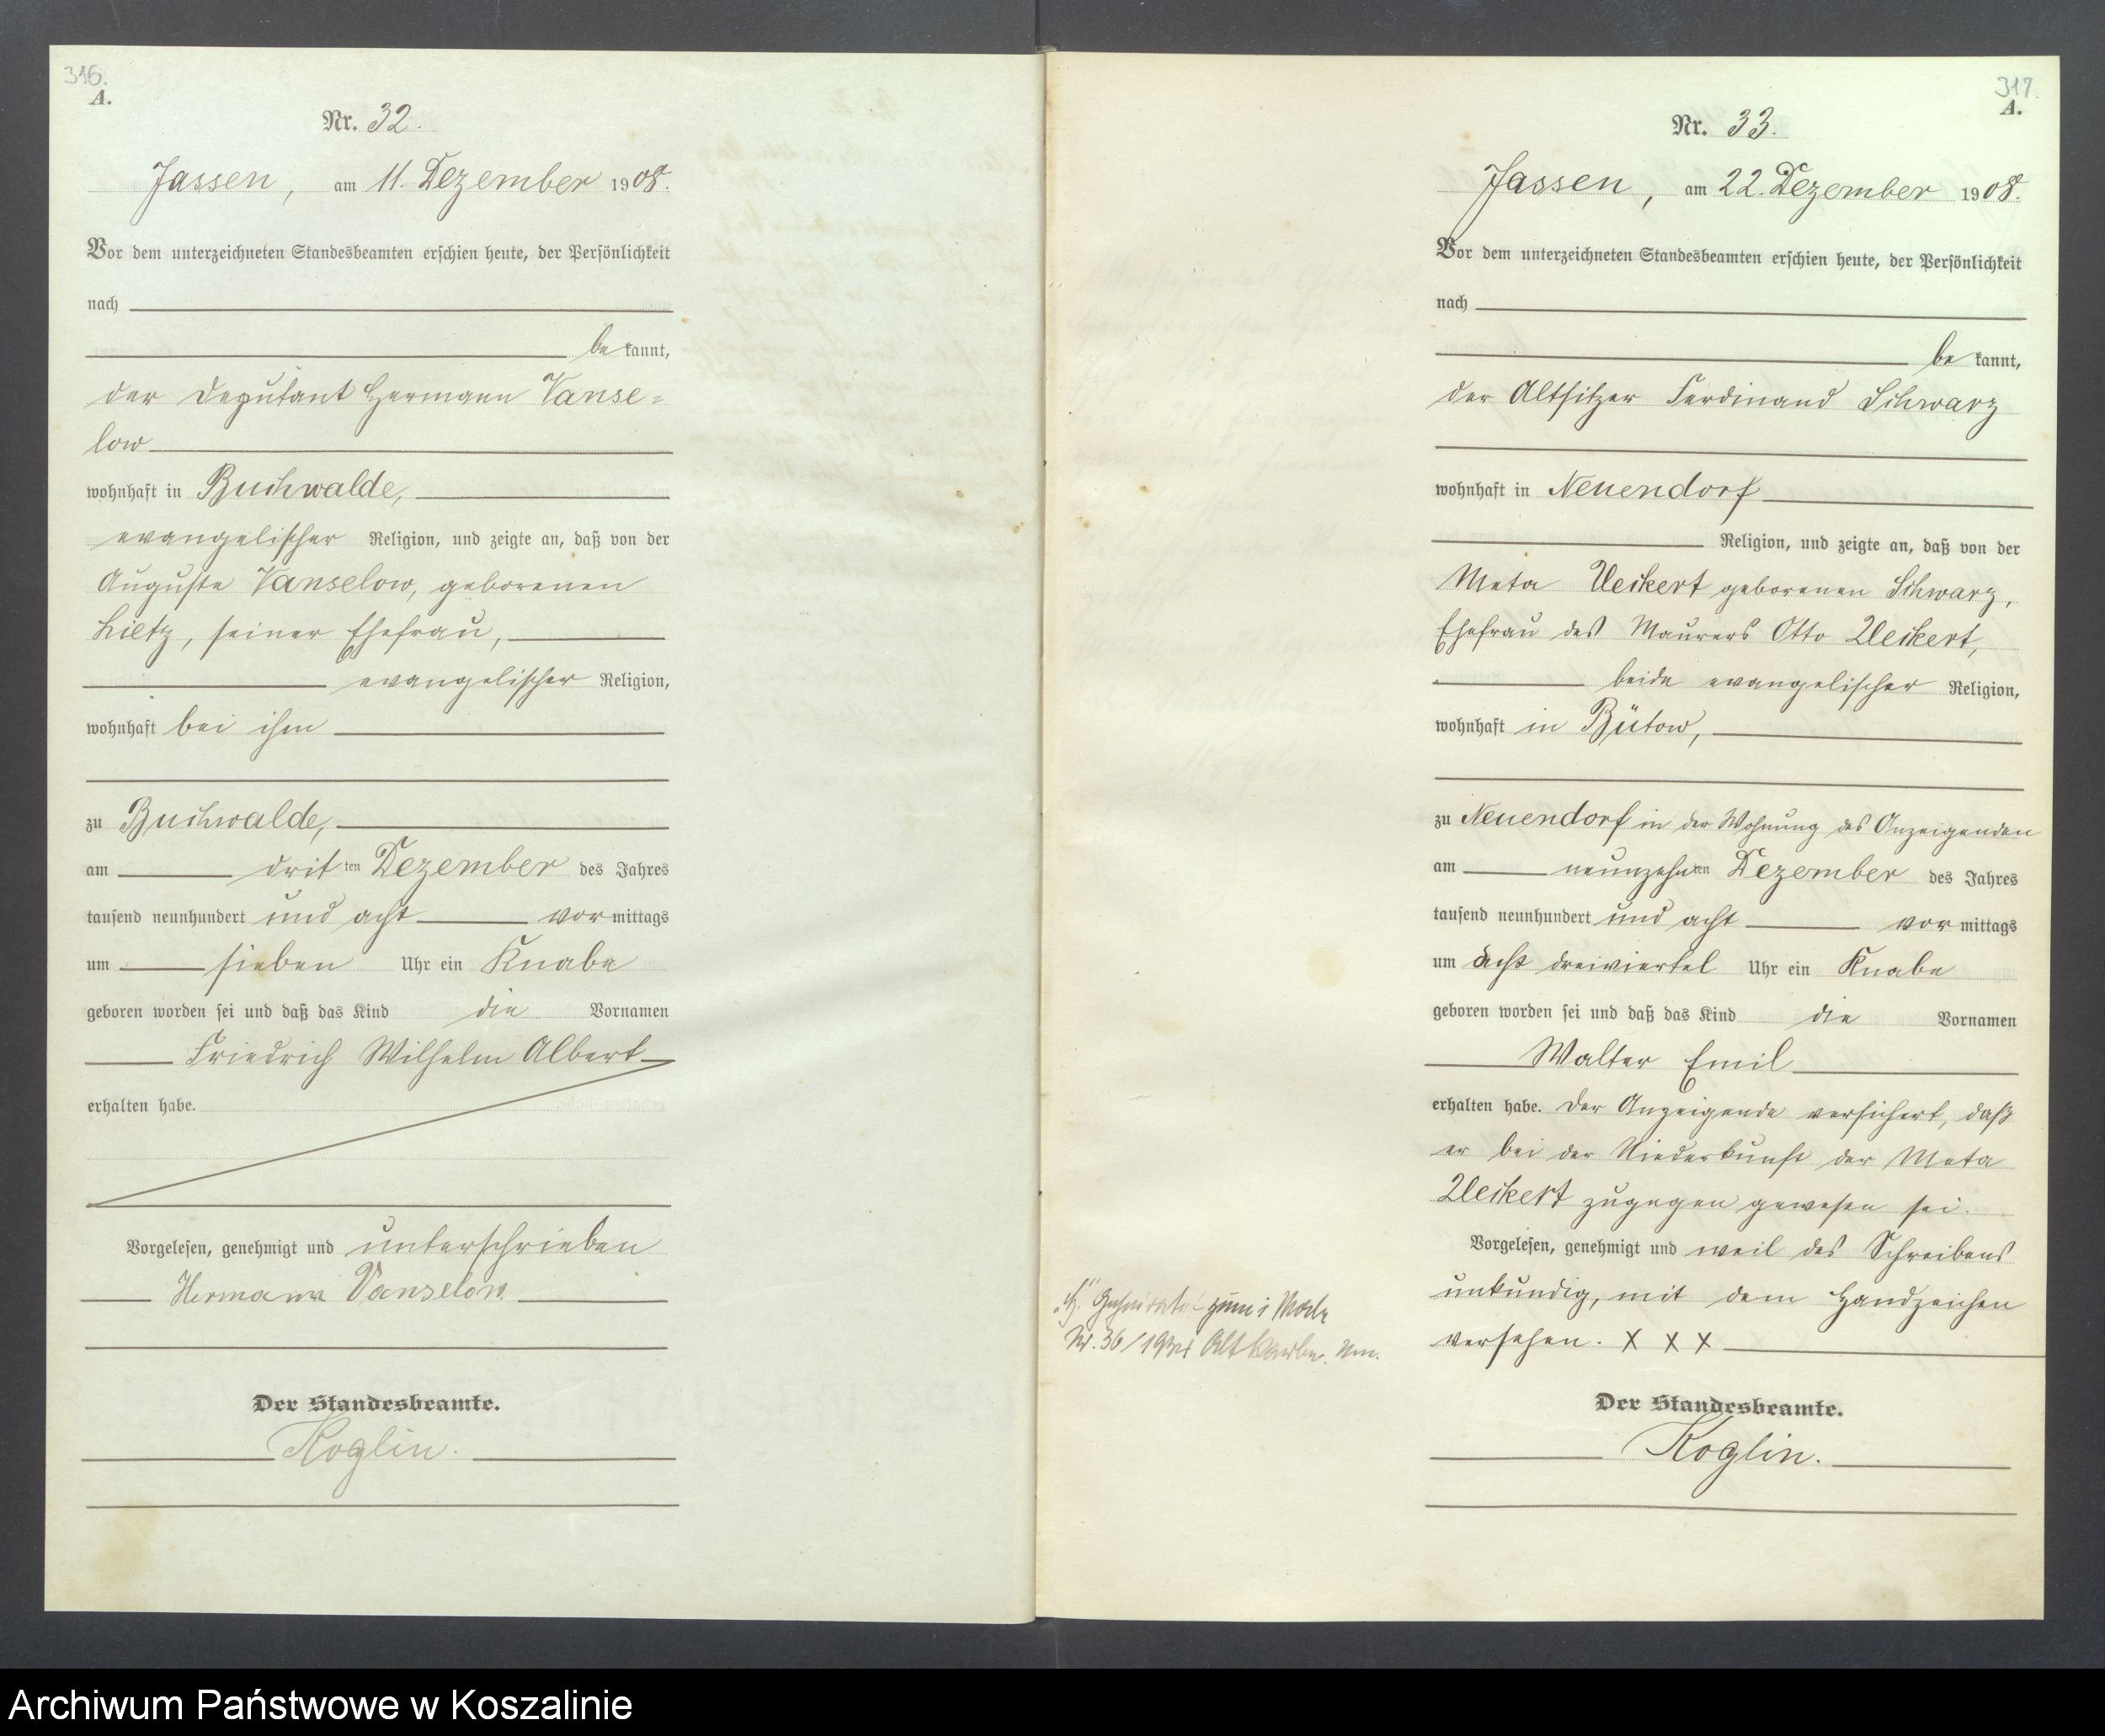 316.
A.
Nr. 32.
Jassen, am 11. Dezember 1908.
Vor dem unterzeichneten Standesbeamten erschien heute, der Persönlichkeit
nach
be kannt,
der Deputant Hermann Vanse=
low
wohnhaft in Buchwalde,
evangelischer Religion, und zeigte an, daß von der
Auguste Vanselow, geborenen
Lietz, seiner Ehefrau,
evangelischer Religion,
wohnhaft bei ihm
zu Buchwalde,
am dritten Dezember des Jahres
tausend neunhundert und acht vormittags
um sieben Uhr ein Knabe
geboren worden sei und daß das Kind die Vornamen
Friedrich Wilhelm Albert
erhalten habe.
Vorgelesen, genehmigt und unterschrieben
Hermann Vanselow
Der Standesbeamte.
Koglin.
317.
A.
Nr. 33.
Jassen, am 22. Dezember 1908.
Vor dem unterzeichneten Standesbeamten erschien heute, der Persönlichkeit
nach
be kannt,
der Altsitzer Ferdinand Schwarz
wohnhaft in Neuendorf
Religion, und zeigte an, daß von der
Meta Ueckert geborenen Schwarz,
Ehefrau des Maurers Otto Ueckert,
beide evangelischer Religion,
wohnhaft in Bütow,
zu Neuendorf in der Wohnung des Anzeigenden
am neunzehnten Dezember des Jahres
tausend neunhundert und acht vormittags
um acht dreiviertel Uhr ein Knabe
geboren worden sei und daß das Kind die Vornamen
Walter Emil
erhalten habe. Der Anzeigende versichert, daß
er bei der Niederkunft der Meta
Ueckert zugegen gewesen sei.
Vorgelesen, genehmigt und weil des Schreibens
unkundig, mit dem Handzeichen
versehen. X X X
Der Standesbeamte.
Koglin.
Nr. 36/19 Alt
Archiwum Państwowe w Koszalinie